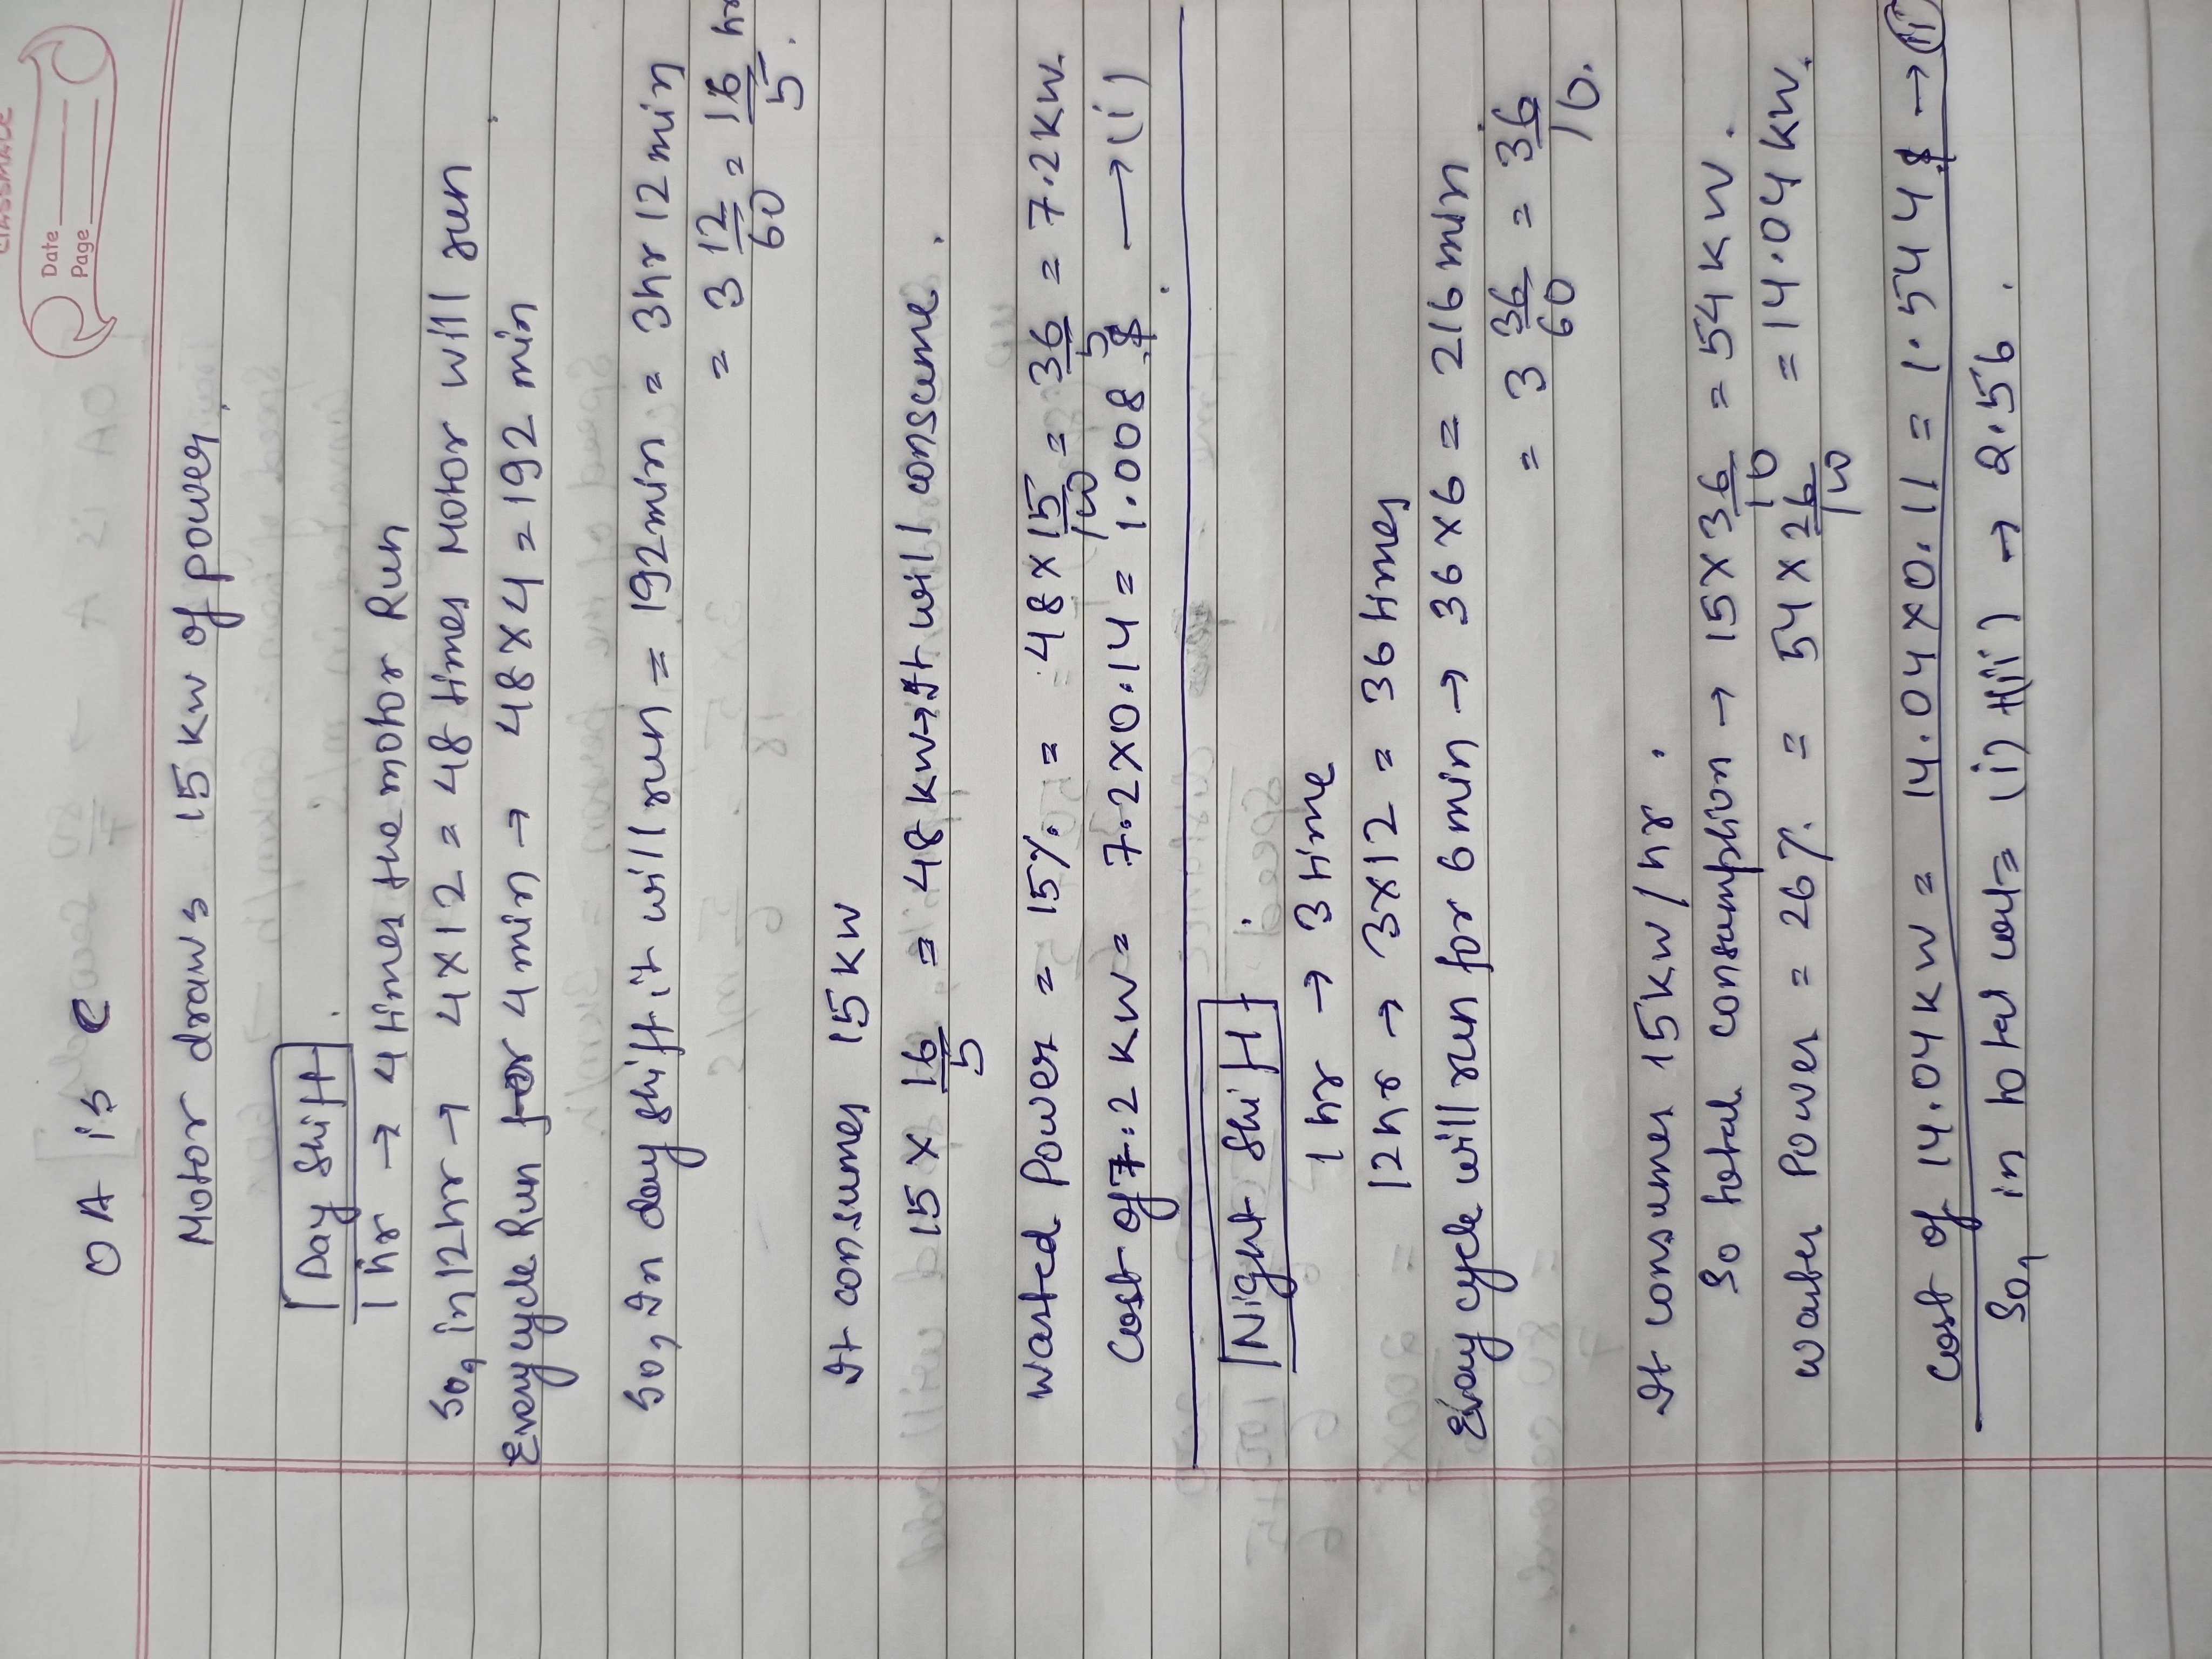 classmate
Date
Page
O A is C
Motor draws 15 kw of power.
Day Shift
1 hr → 4 times the motor Run
So, in 12hr → 4 x 12 = 48 times Motor will run
Every cycle Run for 4 min → 48 x 4 = 192 min
So, In day shift it will run = 192min = 3hr 12 min
= 3 12/60 = 16/5 hr
It consumes 15 kw
15 x 16/5 = 48 kw → It will consume.
Wasted Power = 15% = 48 x 15/100 = 36/5 = 7.2 kw.
Cost of 7.2 kw = 7.2x0.14 = 1.008 $. → (i)
Night Shift
1 hr → 3 time
12hr → 3x12 = 36 times
Every cycle will run for 6 min → 36 x 6 = 216 min
= 3 36/60 = 36/10.
It consumes 15kw/hr.
So total consumption → 15 x 36/10 = 54 kw.
waster Power = 26% = 54 x 26/100 = 14.04 kw.
Cost of 14.04 kw = 14.04 x 0.11 = 1.544 $ → (ii)
So, in total cost = (i) + (ii) → 2.56.